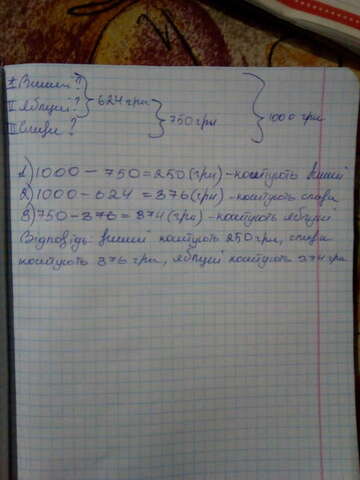 I Вишні ?
II Яблуні ? 624 грн
750 грн 1000 грн
III Сливи ?
1) 1000 - 750 = 250 (грн) - коштують вишні
2) 1000 - 624 = 376 (грн) - коштують сливи
3) 750 - 376 = 374 (грн) - коштують яблуні
Відповідь: вишні коштують 250 грн, сливи
коштують 376 грн, яблуні коштують 374 грн